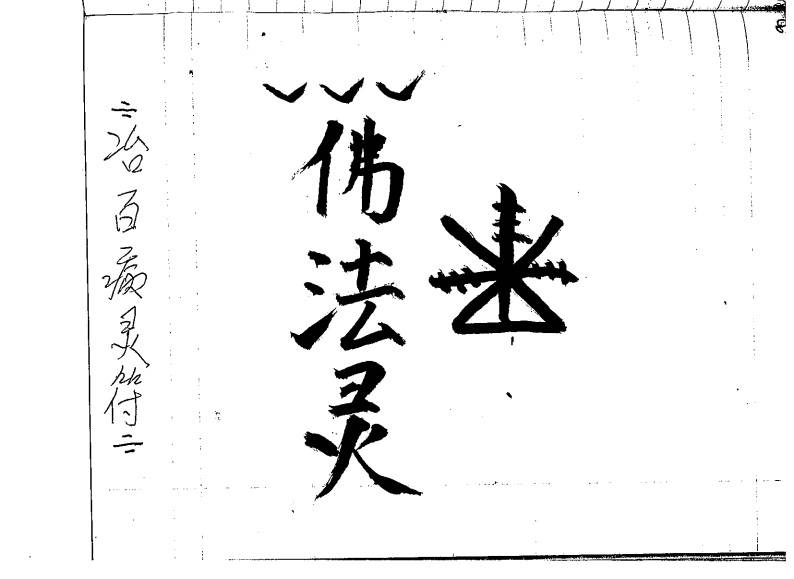 佛法灵
二治百病灵符二